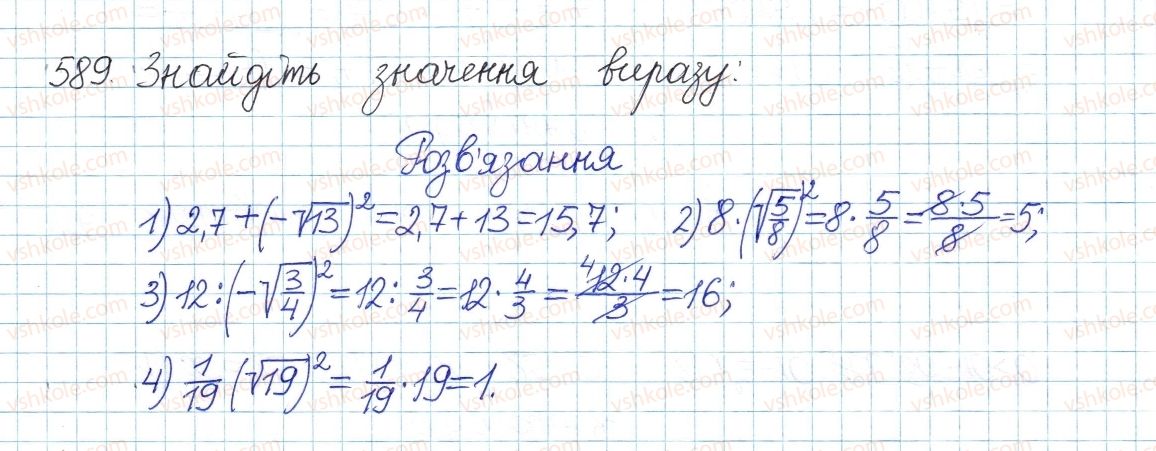 589. Знайдіть значення виразу:
Розв'язання
1) 2,7+(-√13)²=2,7+13=15,7; 2) 8·(√5/8)²=8·5/8=8·5/8=5;
3) 12:(-√3/4)²=12:3/4=12·4/3=⁴12·4/3=16;
4) 1/19 (√19)²=1/19·19=1.